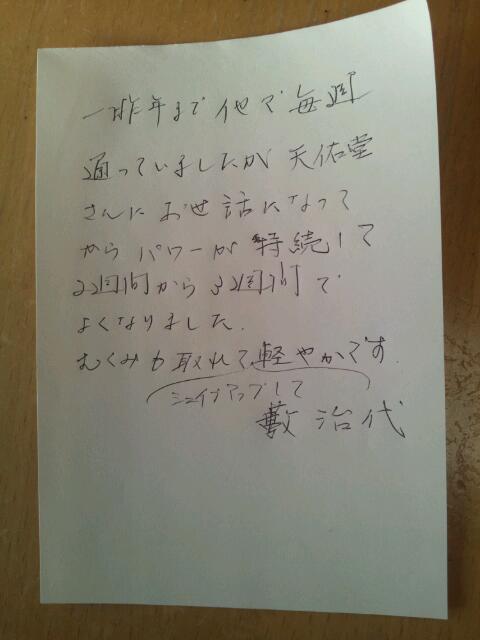 一昨年まで他で毎週
通っていましたが天佑堂
さんにお世話になって
からパワーが持続して
2週間から3週間で
よくなりました.
むくみも取れて軽やかです.
シェイプアップして
藪治代